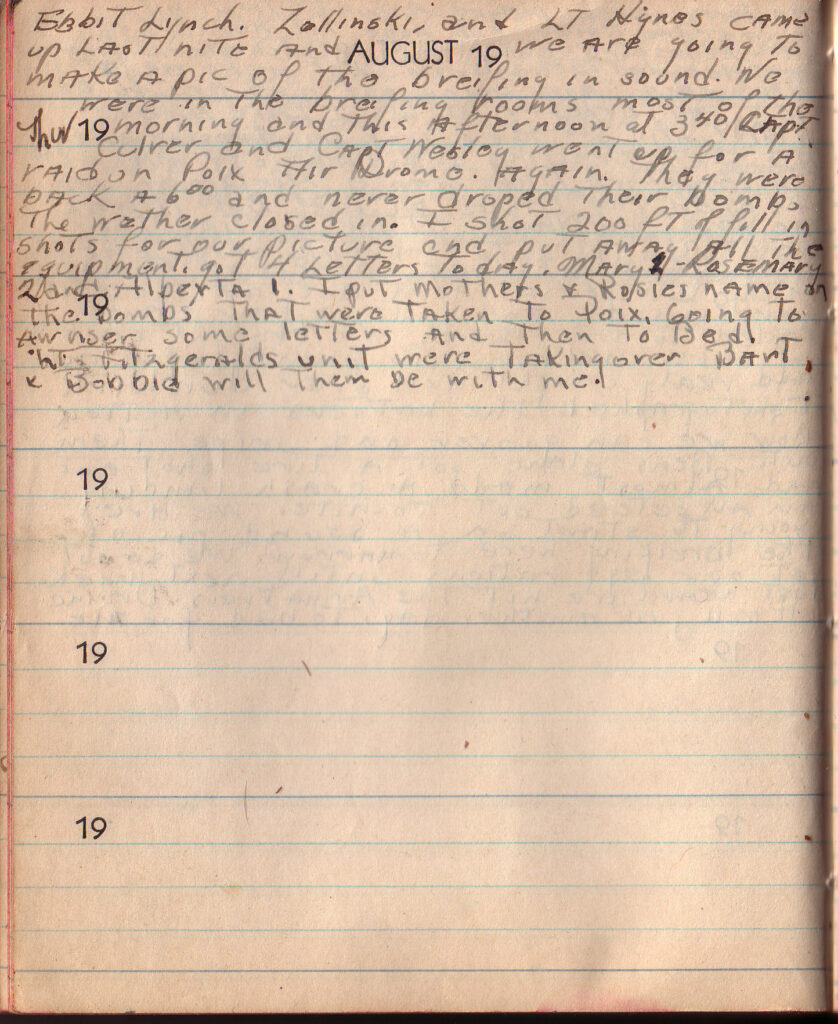 Ebbit Lynch. Zollinski, and LT Hynes came
up Last nite and AUGUST 19 we are going To
make a pic of the breifing in sound. We
were in The breifing rooms most of the
Thur 19 morning and This Afternoon at 3 40/ Capt
Culver and Capt Nesley went up for A
raid on Poix Air Drome. Again. They were
back A 6 00 and never droped Their bombs
The wether closed in. I shot 200 FT of fill in
shots for our picture and put Away All the
equipment. got 4 Letters Today. Mary 1 - Rosemary
2 and Alberta 1. I put Mothers & Rosies name on
19
the bombs That were Taken To Poix. Going To
Awnser some letters And Then To Bed.
Fitzgeralds unit were Taking over Bart
& Bobbie will Them be with me.
19
19
19